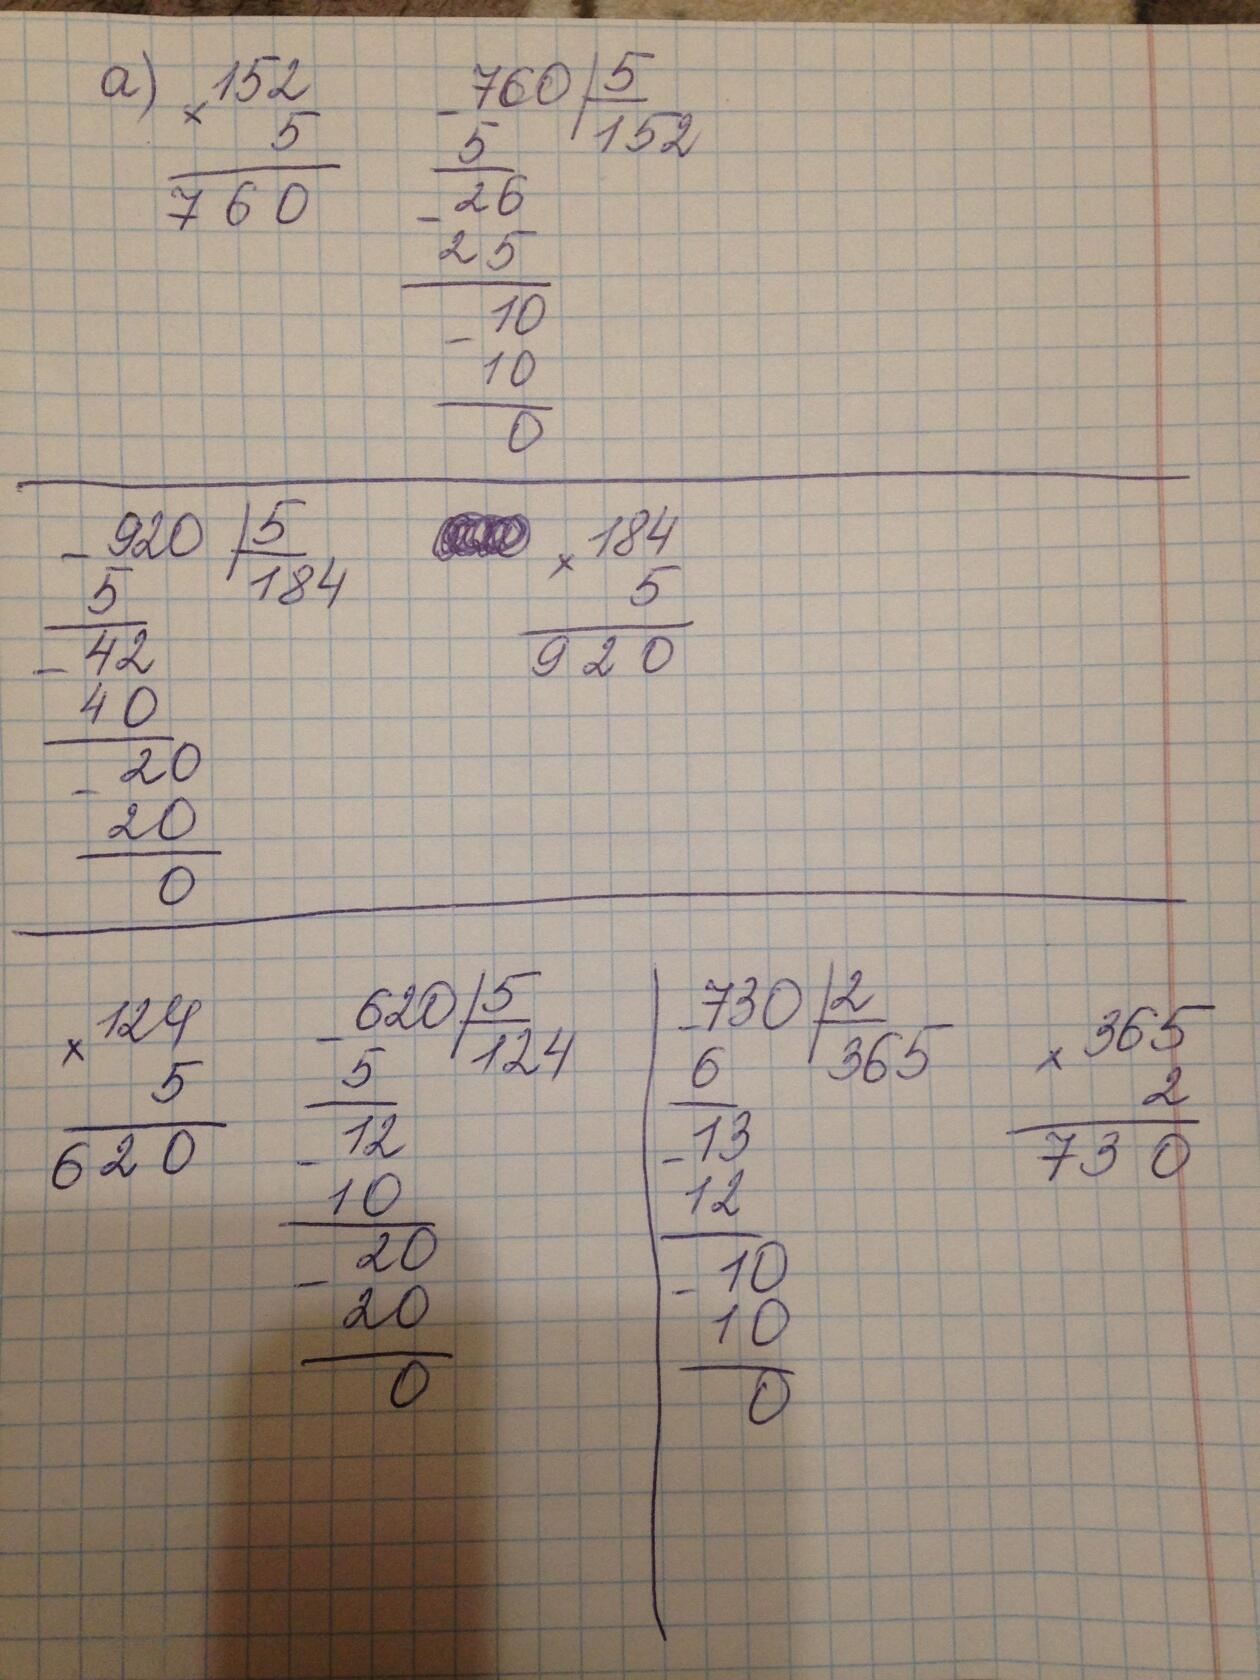 а) 152
× 5
760
- 760 | 5
5 | 152
- 26
25
- 10
10
0
- 920 | 5
5 | 184
- 42
40
- 20
20
0
× 184
5
920
× 124
5
620
- 620 | 5
5 | 124
- 12
10
- 20
20
0
- 730 | 2
6 | 365
- 13
12
- 10
10
0
× 365
2
730